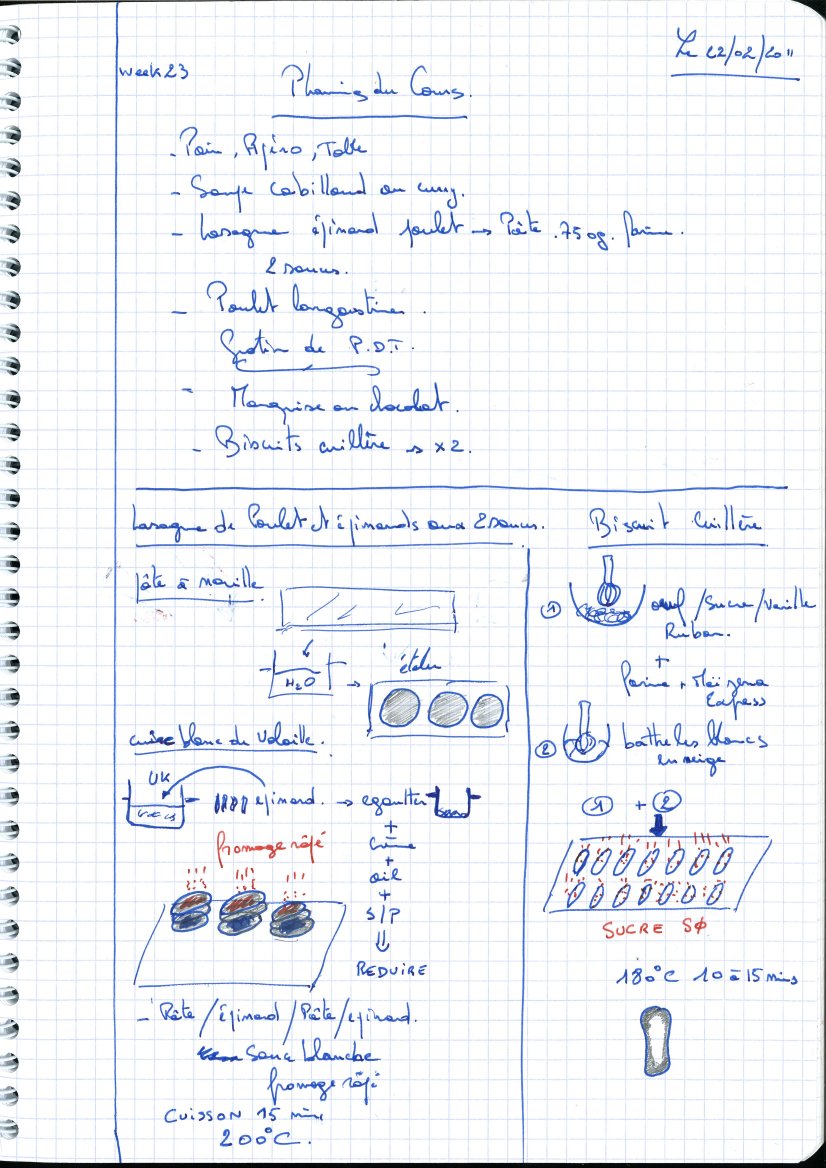 Le 22/02/2011
week 23
Planning du Cours.
- Pain, Apéro, Table
- Soupe cabillaud au curry.
- Lasagne épinard poulet → Pâte . 750g. farine.
2 sauces.
- Poulet langoustines.
Gratin de P.D.T.
- Marquise au chocolat.
- Biscuits cuillère → x2.
Lasagne de Poulet et épinards aux 2 sauces.
Pâte à nouille
H2O → étaler
cuire blanc de volaille.
épinard. → egoutter
+
Crème
+
ail
+
S/P
⇓
REDUIRE
fromage râpé
- Pâte / épinard / Pâte / épinard.
Sauce blanche
fromage râpé
CUISSON 15 mins
200°C.
Biscuit Cuillère
① oeuf / Sucre / Vanille
Ruban.
+
farine + Maïzena
Express
② batthe les blancs
en neige
① + ②
SUCRE SØ
180°C 10 à 15 mins